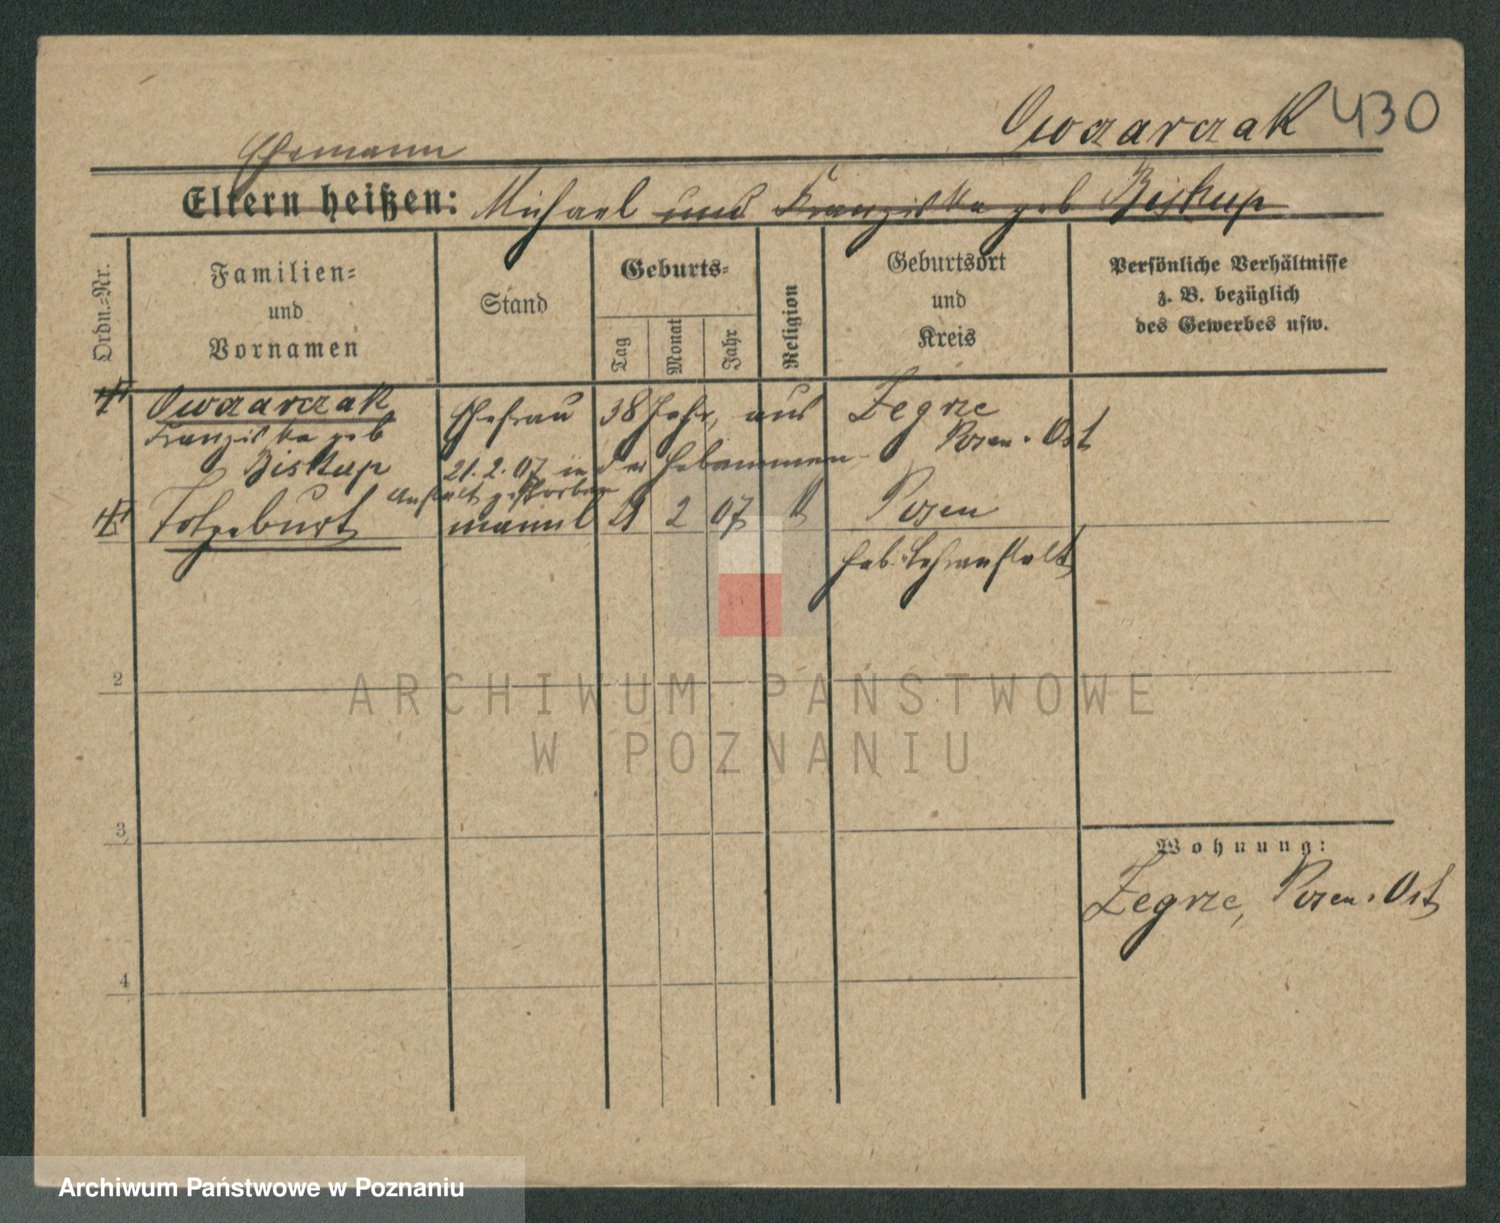 Owczarczak 430
Ehemann
Eltern heißen: Michael und Franziska geb Biskup
Ordn.-Nr.
Familien-
und
Vornamen
Stand
Geburts-
Tag
Monat
Jahr
Religion
Geburtsort
und
Kreis
Persönliche Verhältnisse
z. B. bezüglich
des Gewerbes usw.
Owczarczak Ehefrau 38 Jahr, aus Zegrze
Franziska geb Posen-Ost
Biskup 21.2.07 in der Hebammen-
Anstalt gestorben
Totgeburt männl 21 2 07 Posen
Heb. Lehranstalt
2
ARCHIWUM PAŃSTWOWE
W POZNANIU
3
Wohnung:
Zegrze, Posen-Ost
4
Archiwum Państwowe w Poznaniu